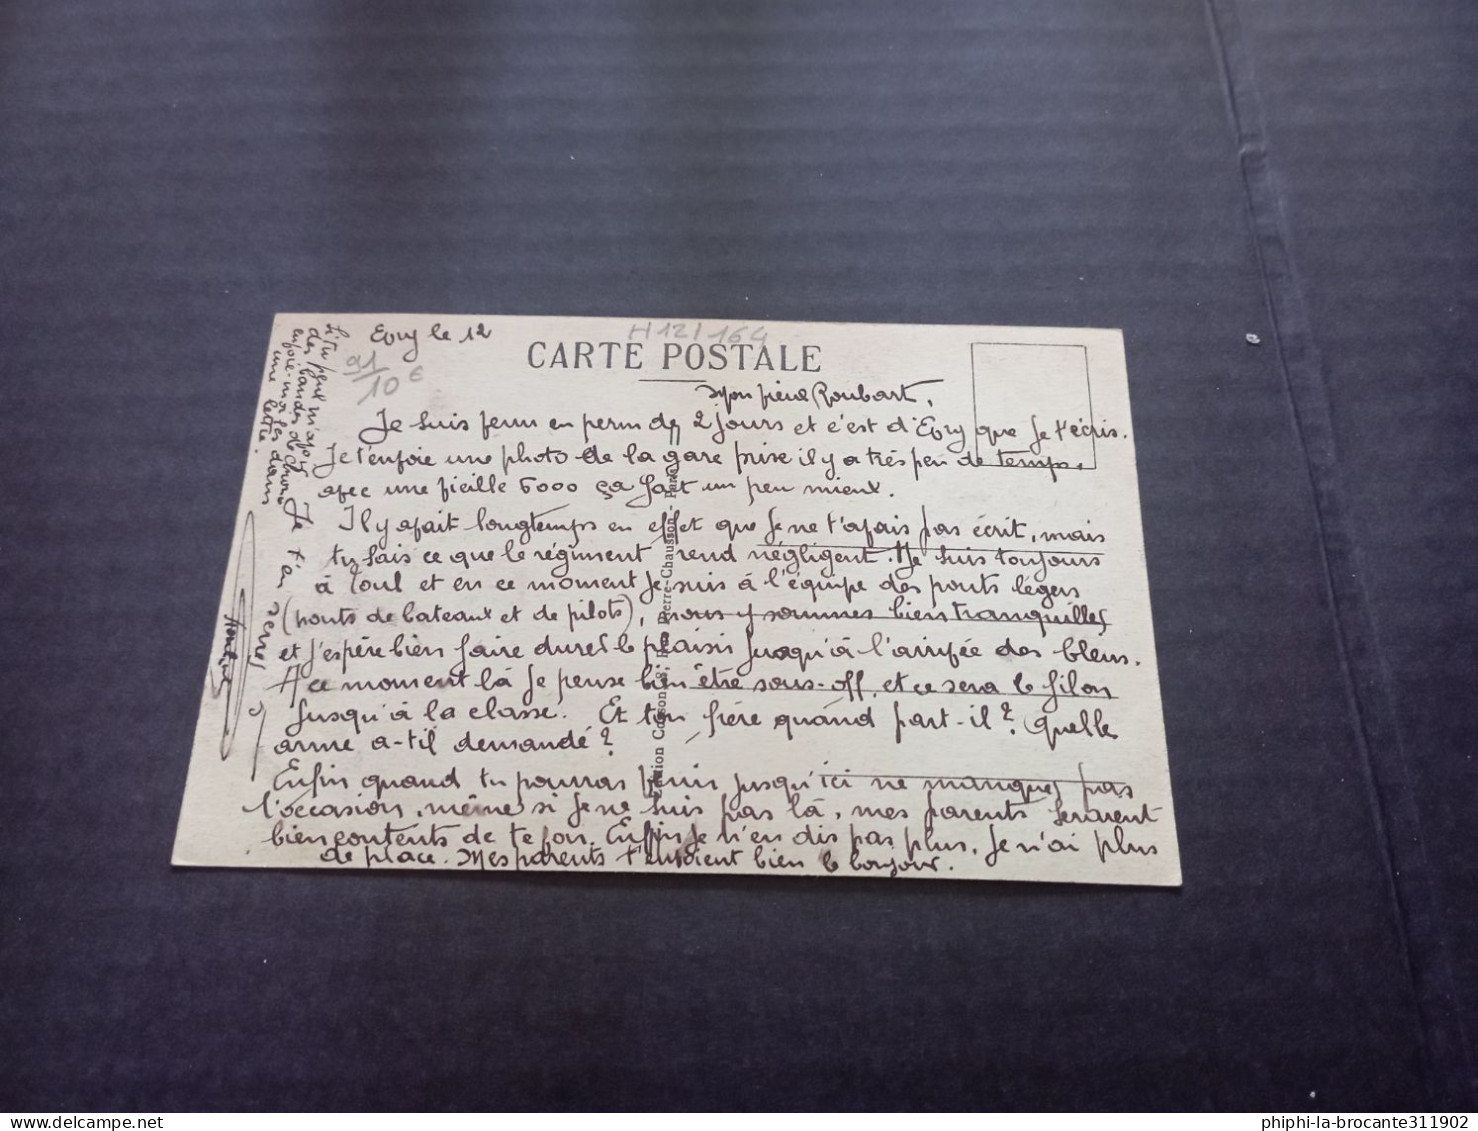 Evry le 12
H12/164
91/10€
CARTE POSTALE
Mon vieux Roubart,
Je suis venu en perm de 2 jours et c'est d'Evry que je t'écris.
Je t'envoie une photo de la gare prise il y a très peu de temps.
avec une vieille 6000 ça fait un peu mieux.
Il y avait longtemps en effet que je ne t'avais pas écrit, mais
tu sais ce que le régiment rend négligent. Je suis toujours
à Toul et en ce moment je suis à l'équipe des ponts légers
(ponts de bateaux et de pilots), nous y sommes bien tranquilles
et j'espère bien faire durer le plaisir jusqu'à l'arrivée des bleus.
A ce moment là je pense bien être sous-off, et ce sera le filon
jusqu'à la classe. Et ton frère quand part-il? Quelle
arme a-t-il demandé?
Enfin quand tu pourras venir jusqu'ici ne manques pas
l'occasion, même si je ne suis pas là, mes parents seraient
bien contents de te voir. Enfin je n'en dis pas plus, je n'ai plus
de place. Mes parents t'envoient bien le bonjour.
Si tu peux m'avoir
des bandes de
envoie-moi les dans
une lettre.
Je t'en
Edition Rue Pierre-Chausson - Paris
phiphi-la-brocante311902